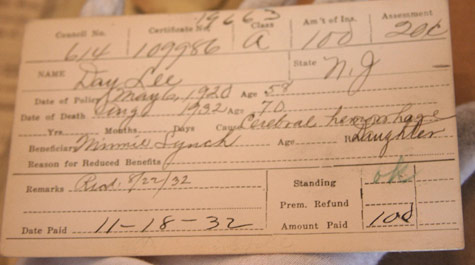 19663
Council No. Certificate No. Class Am't of Ins. Assessment
614 109986 A 100 20¢
NAME Day Lee State N.J
Date of Policy May 6, 1920 Age 58
Date of Death Aug 1932 Age 70
Yrs. Months. Days Cause Cerebral hemorrhage
Beneficiary Minnie Lynch Age Daughter
Reason for Reduced Benefits
Remarks Recd. 8/22/32 Standing ok
Prem. Refund
Date Paid 11-18-32 Amount Paid 100